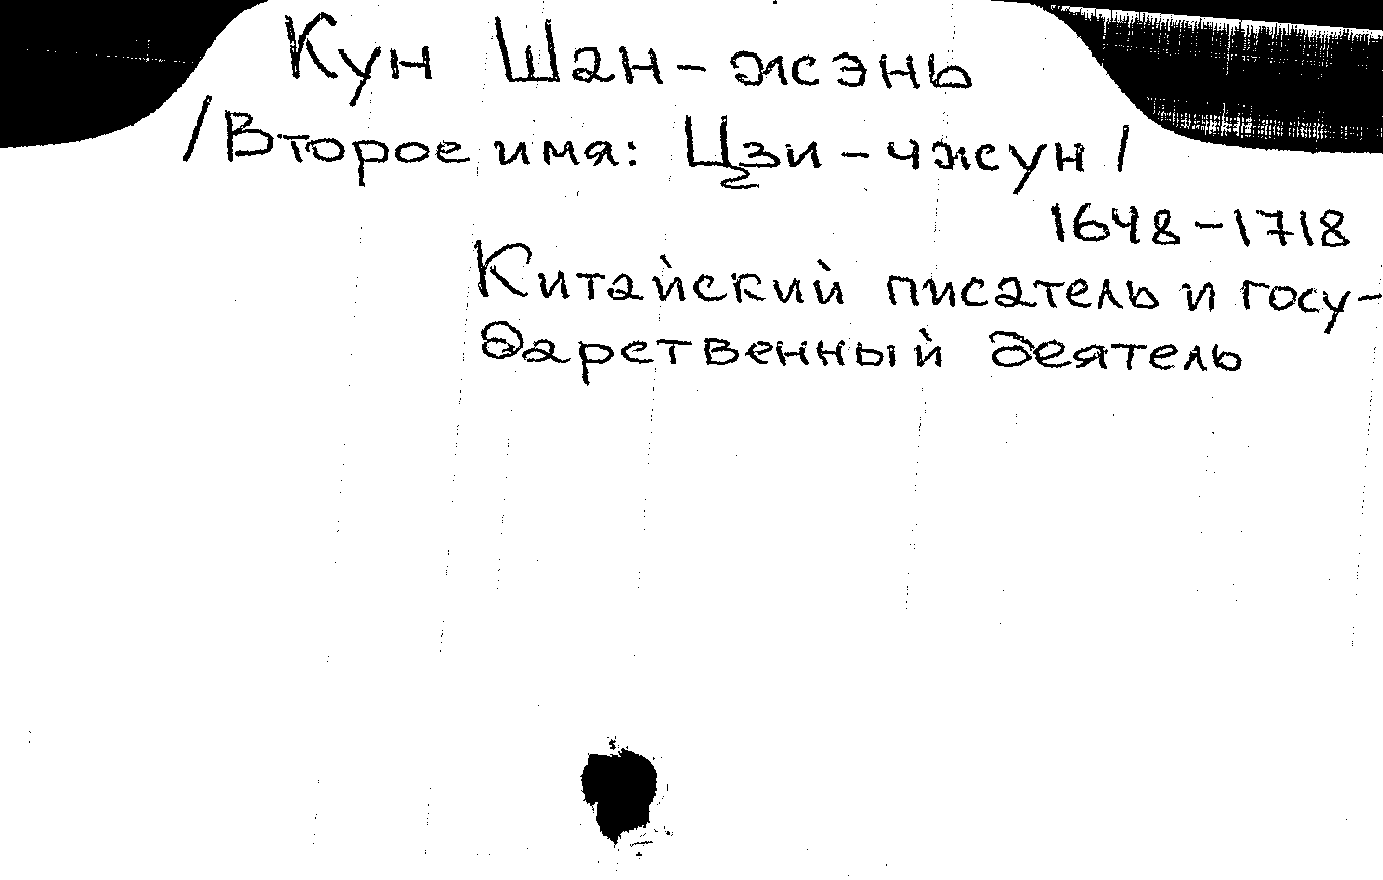 Кун Шан-жэнь
/Второе имя: Цзи-чжун/
1648-1718
Китайский писатель и госу-
дарственный деятель